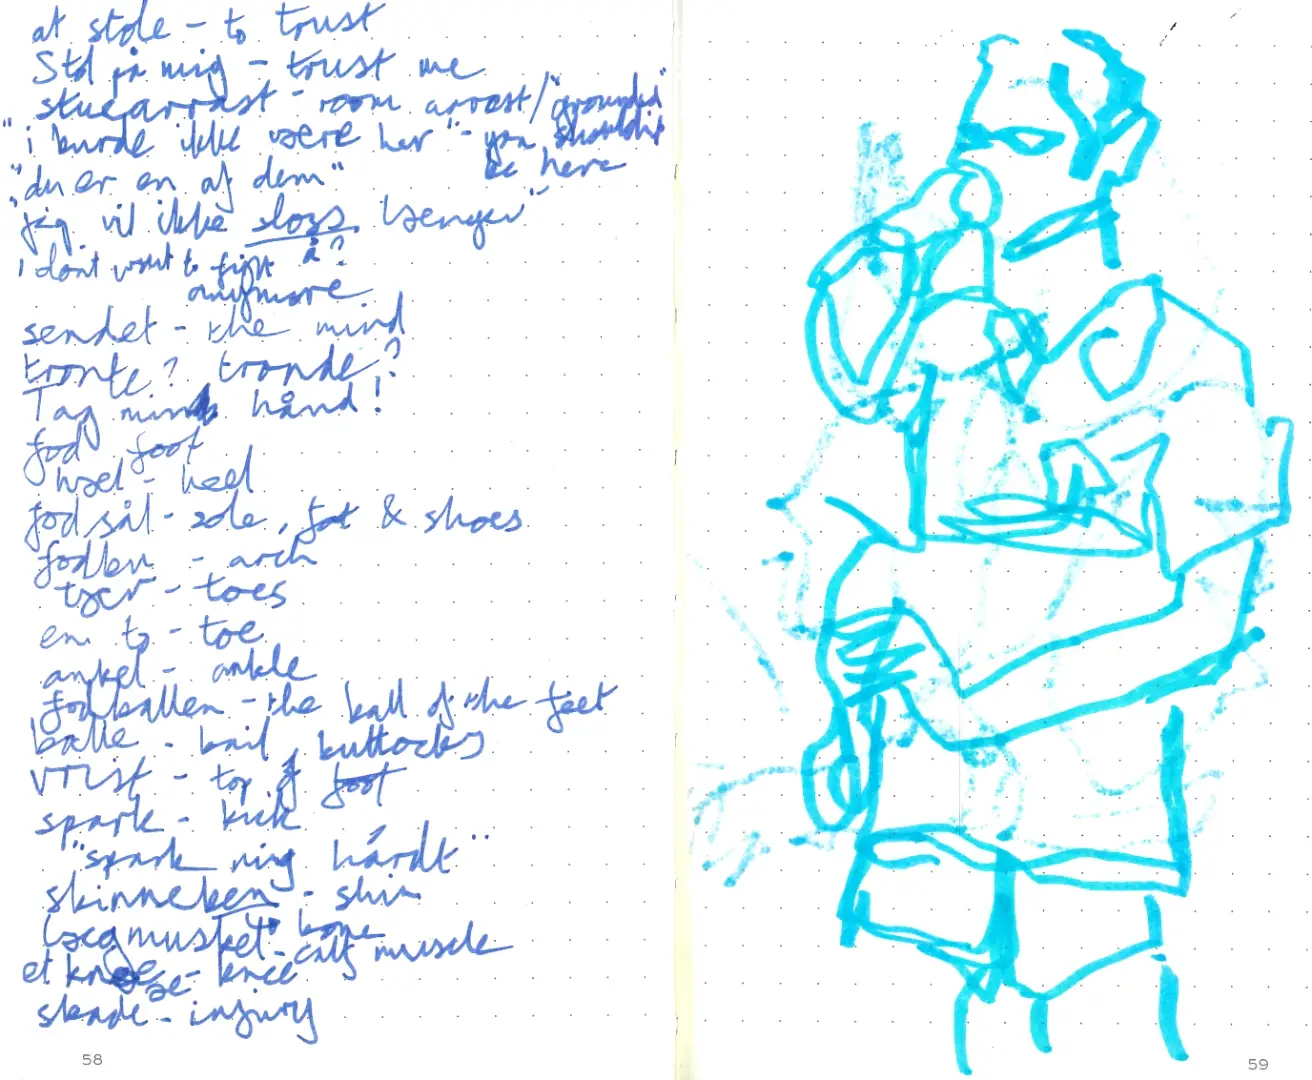 at stole - to trust
Stol på mig - trust me
stuearrast - room arrest/"grounded"
"i burde ikke være her" - you shouldn't
be here
"du er en af dem"
"jeg vil ikke slogs længer"
å?
i dont want to fight
anymore
sendet - the mind
tronte? tronde?
Tag min hånd!
fod foot
hæl - heel
fodsål - sole, foot & shoes
fodben - arch
tæer - toes
en tå - toe
ankel - ankle
fodballen - the ball of the feet
balle - bail, buttocks
vrist - top of foot
spark - kick
"spark mig hårdt"
skinneben - shin
bone
lægmusklet - calf muscle
et knæ - knee
æ
skade - injury
58
59